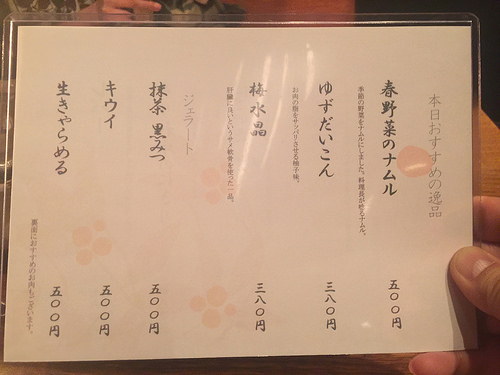 本日おすすめの逸品
春野菜のナムル 五〇〇円
季節の野菜をナムルにしました。料理長が作るナムル。
ゆずだいこん 三八〇円
お肉の脂をサッパリさせる柚子味。
梅水晶 三八〇円
肝臓に良いというサメ軟骨を使った一品。
ジェラート
抹茶 黒みつ 五〇〇円
キウイ 五〇〇円
生きゃらめる 五〇〇円
裏面におすすめのお肉もございます。